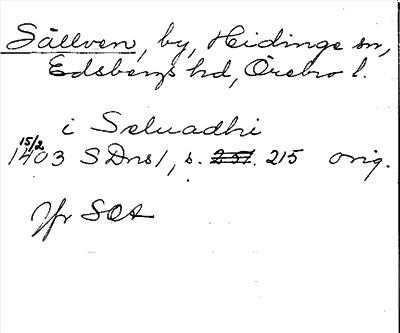 Sällven, by, Hidinge sn,
Edsbergs hd, Örebro l.
i Seluadhi
15/2
1403 SDns 1, s. 251. 215 orig.
Jfr SOÄ